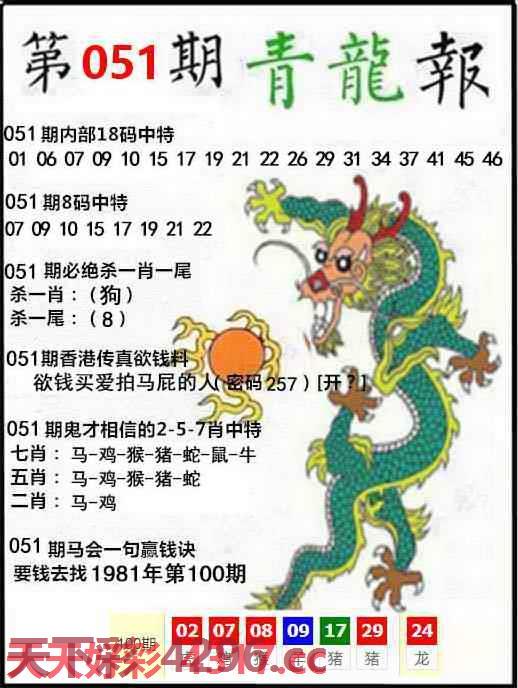 第051期 青龍報
051期内部18码中特
01 06 07 09 10 15 17 19 21 22 26 29 31 34 37 41 45 46
051期8码中特
07 09 10 15 17 19 21 22
051 期必绝杀一肖一尾
杀一肖：（狗）
杀一尾：（8）
051期香港传真欲钱料
欲钱买爱拍马屁的人(密码257）[开？]
051期鬼才相信的2-5-7肖中特
七肖：马-鸡-猴-猪-蛇-鼠-牛
五肖：马-鸡-猴-猪-蛇
二肖：马-鸡
051期马会一句赢钱诀
要钱去找1981年第100期
100期 02 07 08 09 17 29 24
猪 猪 龙